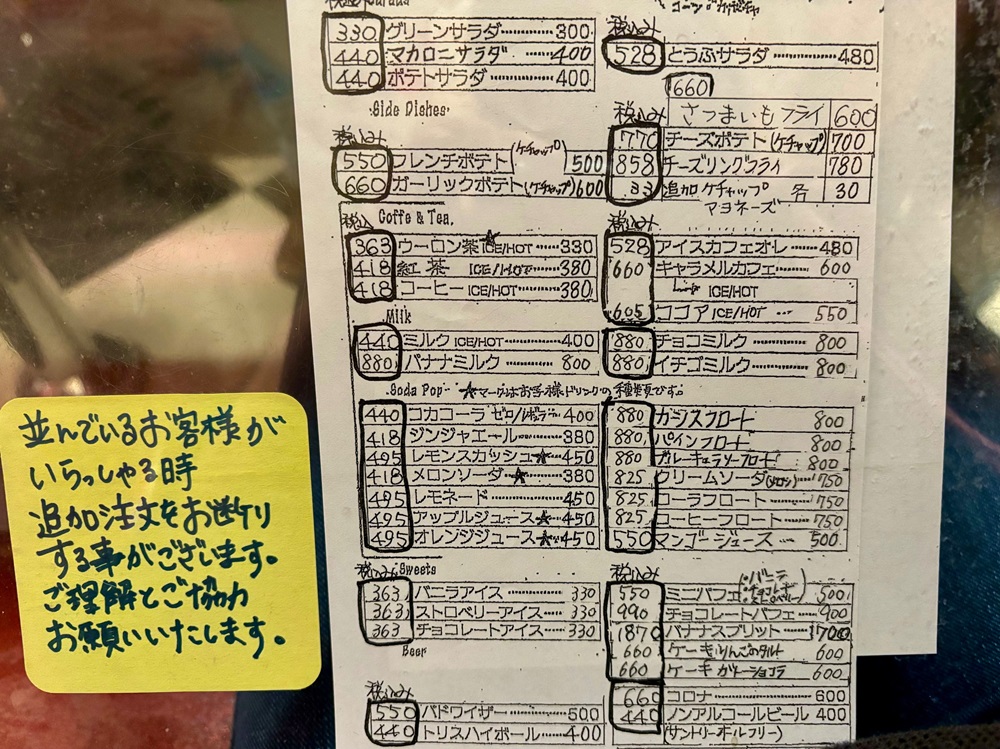 330 グリーンサラダ 300
440 マカロニサラダ 400
440 ポテトサラダ 400
528 とうふサラダ 480
Side Dishes
税込み
550 フレンチポテト (ケチャップ) 500
660 ガーリックポテト (ケチャップ) 600
660
税込み さつまいもフライ 600
770 チーズポテト (ケチャップ) 700
858 チーズリングフライ 780
33 追加ケチャップ 各 30
マヨネーズ
税込 Coffe & Tea.
363 ウーロン茶★ ICE/HOT 330
418 紅茶 ICE/HOT 380
418 コーヒー ICE/HOT 380
税込み
528 アイスカフェオレ 480
660 キャラメルカフェ 600
ICE/HOT
605 ココア ICE/HOT 550
Milk
440 ミルク ICE/HOT 400
880 バナナミルク 800
880 チョコミルク 800
880 イチゴミルク 800
Soda Pop ★マークはお子様ドリンクの種類です。
440 コカコーラ 400
418 ジンジャエール 380
495 レモンスカッシュ★ 450
418 メロンソーダ★ 380
495 レモネード 450
495 アップルジュース★ 450
495 オレンジジュース★ 450
880 カシスフロート 800
880 パインフロート 800
880 ブルーキュラソーフロート 800
825 クリームソーダ(メロン) 750
825 コーラフロート 750
825 コーヒーフロート 750
550 マンゴージュース 500
税込み Sweets
363 バニラアイス 330
363 ストロベリーアイス 330
363 チョコレートアイス 330
税込み
550 ミニパフェ 500
990 チョコレートパフェ 900
1870 バナナスプリット 1700
660 ケーキ りんごのタルト 600
660 ケーキ ガトーショコラ 600
Beer
税込み
550 バドワイザー 500
440 トリスハイボール 400
660 コロナ 600
440 ノンアルコールビール 400
(サントリーオールフリー)
並んでいるお客様が
いらっしゃる時
追加注文をお断り
する事がございます。
ご理解とご協力
お願いいたします。